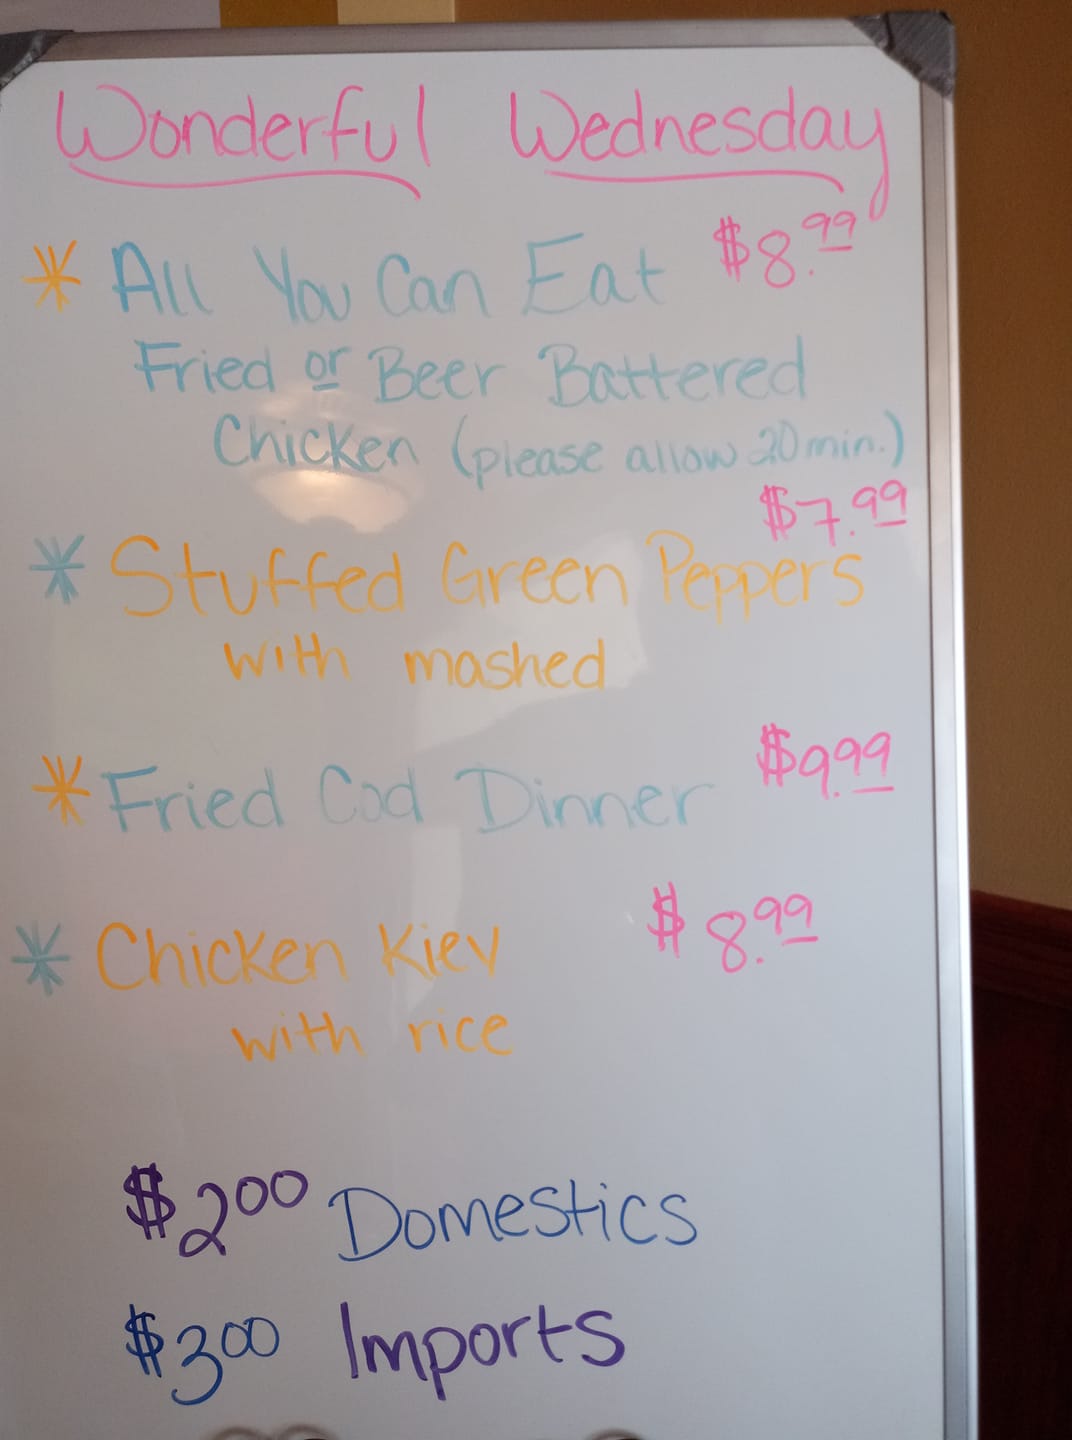 Wonderful Wednesday
* All You Can Eat $8.99
Fried or Beer Battered
Chicken (please allow 20 min.)
$7.99
* Stuffed Green Peppers
with mashed
* Fried Cod Dinner $9.99
* Chicken Kiev $8.99
with rice
$2.00 Domestics
$3.00 Imports